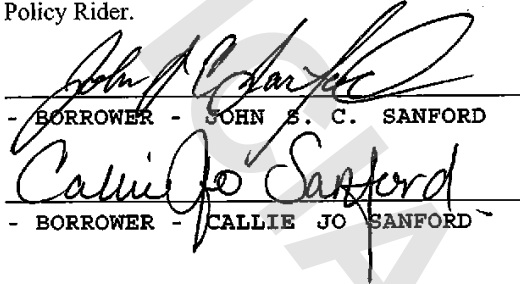 Policy Rider.
John S C Sanford
- BORROWER - JOHN S. C. SANFORD
Callie Jo Sanford
- BORROWER - CALLIE JO SANFORD